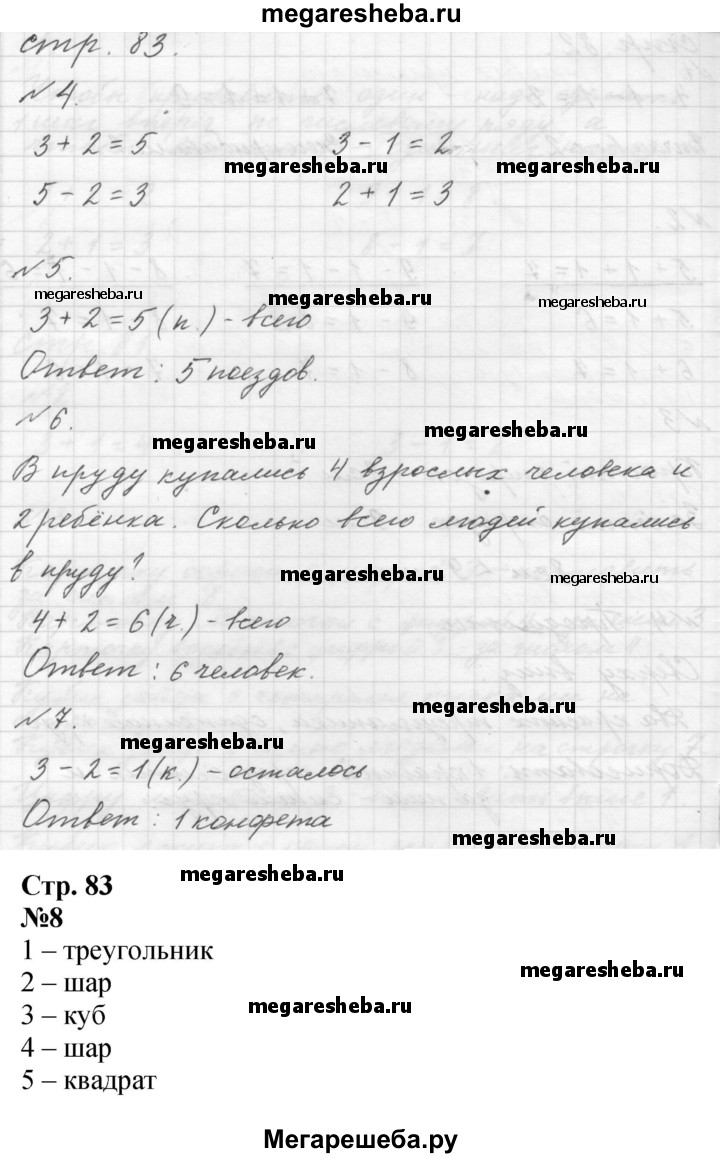 megaresheba.ru
стр. 83.
№ 4.
3 + 2 = 5 3 - 1 = 2
megaresheba.ru megaresheba.ru
5 - 2 = 3 2 + 1 = 3
№ 5.
megaresheba.ru megaresheba.ru megaresheba.ru
3 + 2 = 5 (п.) - всего
Ответ : 5 поездов.
№ 6.
megaresheba.ru megaresheba.ru
В пруду купались 4 взрослых человека и
2 ребёнка. Сколько всего людей купались
в пруду?
megaresheba.ru megaresheba.ru
4 + 2 = 6 (ч.) - всего
Ответ : 6 человек.
megaresheba.ru
№ 7.
megaresheba.ru
3 - 2 = 1 (к.) - осталось
Ответ : 1 конфета
megaresheba.ru
megaresheba.ru
Стр. 83
№8
1 – треугольник
megaresheba.ru
2 – шар
megaresheba.ru
3 – куб
4 – шар
5 – квадрат
Мегарешеба.ру